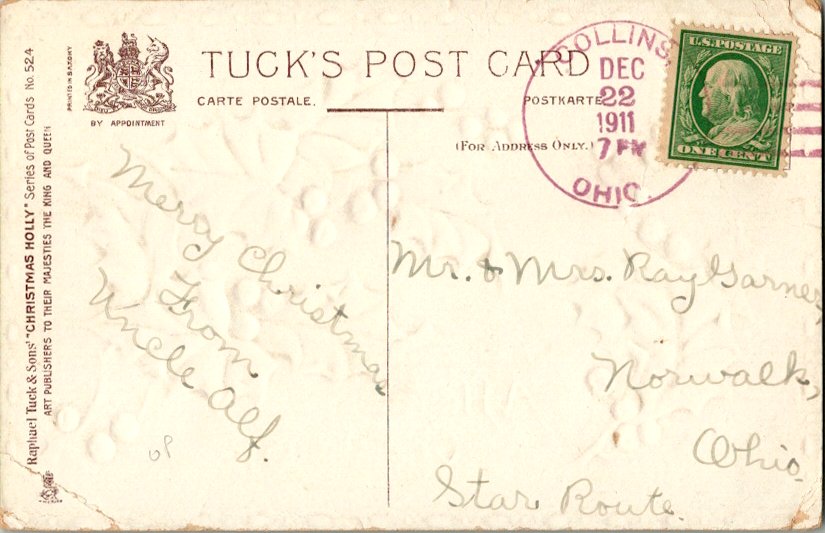 TUCK'S POST CARD
CARTE POSTALE.
POSTKARTE
(FOR ADDRESS ONLY.)
BY APPOINTMENT
PRINTED IN SAXONY
Raphael Tuck & Sons' "CHRISTMAS HOLLY" Series of Post Cards No. 524
ART PUBLISHERS TO THEIR MAJESTIES THE KING AND QUEEN
COLLINS,
DEC
22
1911
7 PM
OHIO.
U.S. POSTAGE
ONE CENT
Merry Christmas
From
Uncle Alf.
Mr. & Mrs. Ray Garner,
Norwalk,
Ohio.
Star Route.